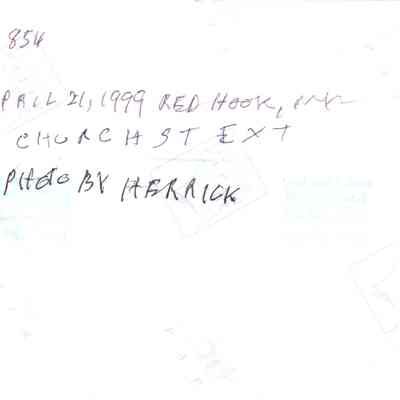 854
PRIL 21, 1999 RED HOOK,
CHURCH ST EXT
PHOTO BY HERRICK